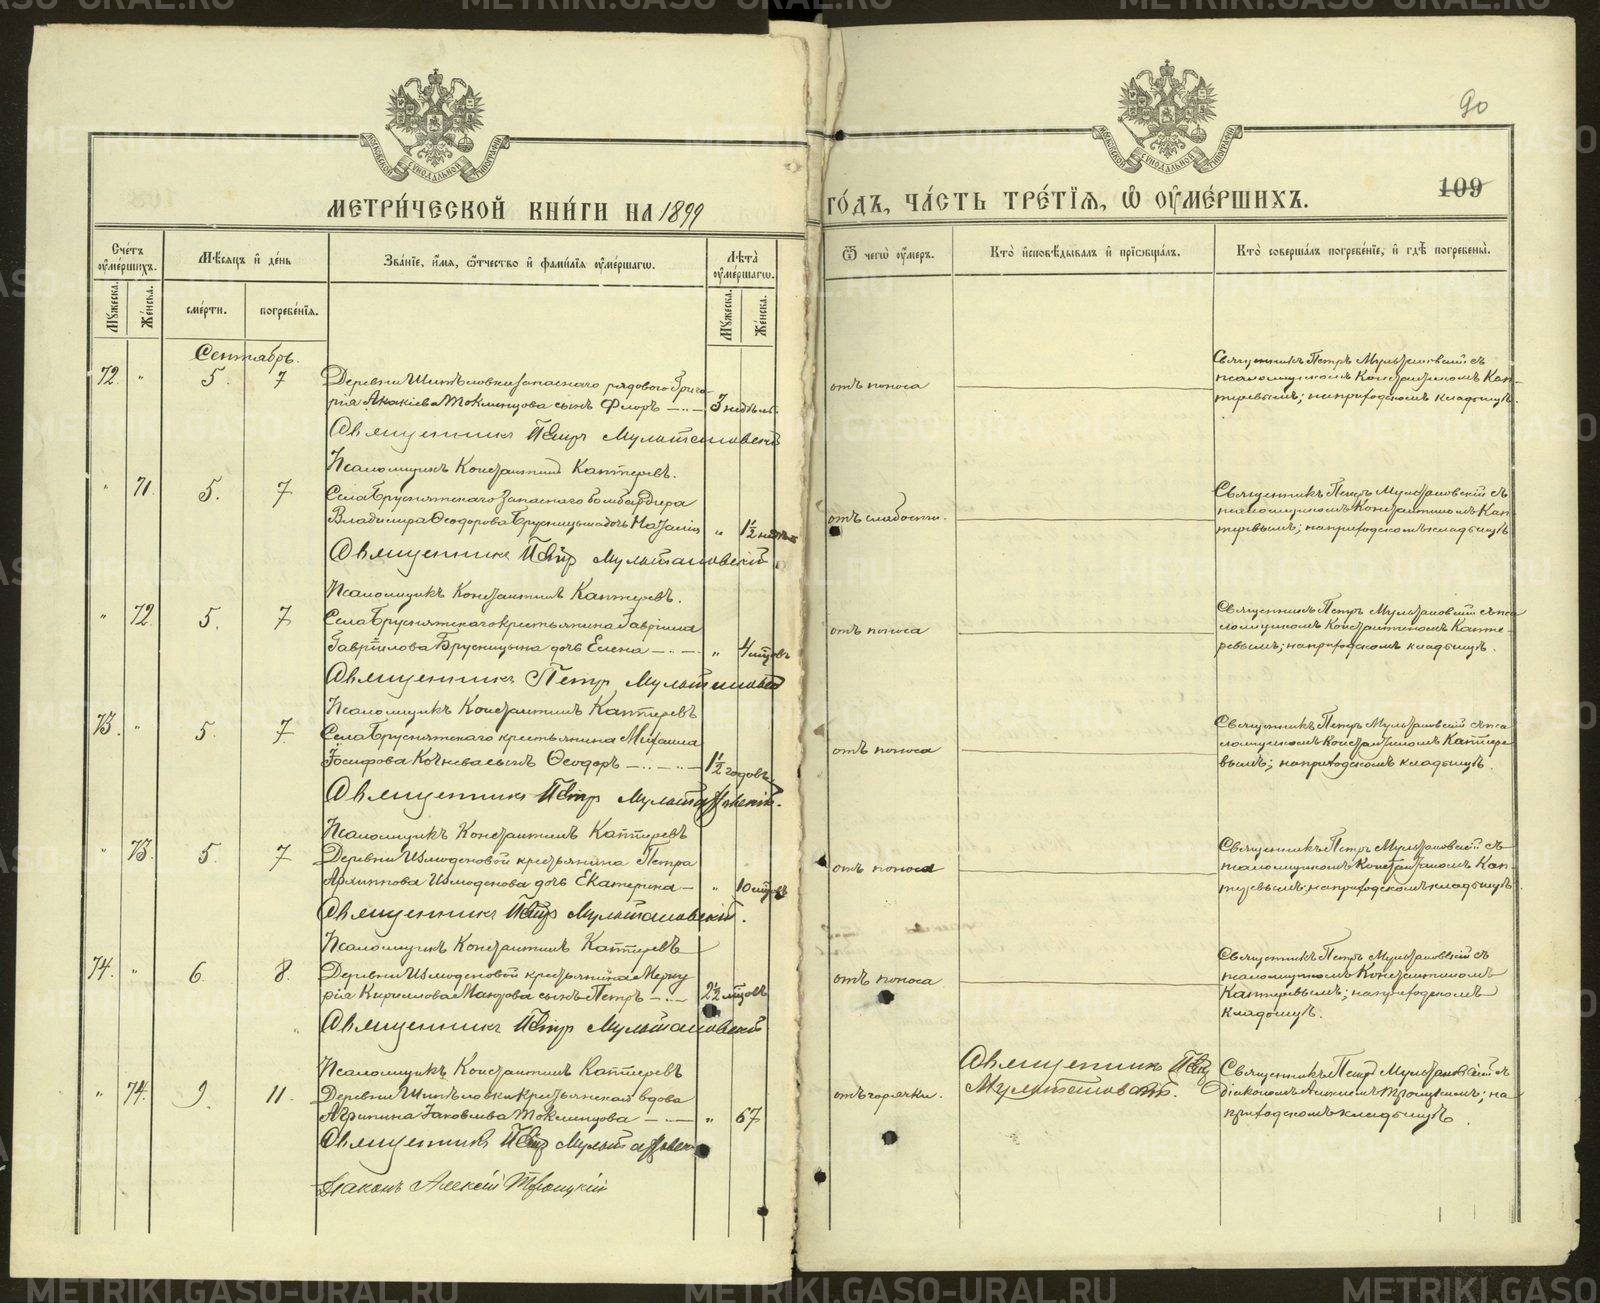 МЕТРИ́ЧЕСКОЙ КНИ́ГИ НА 1899
ГО́ДЪ, ЧА́СТЬ ТРЕ́ТІѦ, Ѽ ОУМЕ́РШИХЪ.
90
109
Сче́тъ оуме́ршихъ.
Му́жеска.
Же́нска.
Мѣ́сяцъ и де́нь
сме́рти.
погребе́нїѧ.
Зва́нїе, и́мѧ, ѻ́тчество и фами́лїѧ оуме́ршагѡ.
Лѣ́та оуме́ршагѡ.
Му́жеска.
Же́нска.
Ѿ чегѡ̀ оу́меръ.
Кто̀ исповѣ́дывалъ и прїѻбща́лъ.
Кто̀ соверша́лъ погребе́нїе, и гдѣ̀ погребены̀.
Сентябрь.
72. " 5. 7
Деревни Шипѣловки запаснаго рядового Григо-
рія Акакіева Токминцова сынъ Флоръ 3 недѣль.
отъ поноса
Священникъ Петръ Мультановскій съ
псаломщикомъ Константиномъ Кап-
теревымъ; на приходскомъ кладбищѣ.
Священникъ Петръ Мультановскій
Псаломщикъ Константинъ Каптеревъ.
" 71. 5. 7
Села Бруснятскаго запаснаго бомбардира
Владимира Ѳеодорова Брусницына дочь Наталія " 1½ недѣл
отъ слабости.
Священникъ Петръ Мультановскій съ
псаломщикомъ Константиномъ Кап-
теревымъ; на приходскомъ кладбищѣ
Священникъ Петр Мультановскій
Псаломщикъ Константинъ Каптеревъ.
" 72. 5. 7
Села Бруснятскаго крестьянина Гавріила
Гавріилова Брусницына дочь Елена " 4 мцовъ
отъ поноса
Священникъ Петръ Мультановскій съ пса
ломщикомъ Константиномъ Капте-
ревымъ; на приходскомъ кладбищѣ.
Священникъ Петр Мультановскій
Псаломщикъ Константинъ Каптеревъ
73. " 5. 7.
Села Бруснятскаго крестьянина Михаила
Іосифова Кочнева сынъ Ѳеодоръ 1½ годовъ
отъ поноса
Священникъ Петръ Мультановскій съ пса
ломщикомъ Константиномъ Каптере
вымъ; на приходскомъ кладбищѣ.
Священникъ Петр Мультановскій.
Псаломщикъ Константинъ Каптеревъ
" 73. 5. 7
Деревни Измоденовой крестьянина Петра
Архиппова Измоденова дочь Екатерина " 10 мцовъ
отъ поноса
Священникъ Петръ Мультановскій съ
псаломщикомъ Константиномъ Кап-
теревымъ; на приходскомъ кладбищѣ
Священникъ Петр Мультановскій.
Псаломщикъ Константинъ Каптеревъ
74. " 6. 8.
Деревни Измоденовой крестьянина Мерку
рія Кириллова сынъ Петръ 2½ мцовъ
отъ поноса
Священникъ Петръ Мультановскій съ
псаломщикомъ Константиномъ
Каптеревымъ; на приходскомъ
кладбищѣ.
Священникъ Петр Мультановскій
Псаломщикъ Константинъ Каптеревъ
" 74. 9. 11.
Деревни Шипѣловки крестьянская вдова
Агрипина Іаковлева Токминцова " 67
отъ горячки.
Священникъ Петр
Мультановскій.
Священникъ Петръ Мультановскій съ
діакономъ Алексіемъ Троицкимъ; на
приходскомъ кладбищѣ.
Священникъ Петр Мультановскій
Діаконъ Алексій Троицкій
METRIKI.GASO-URAL.RU